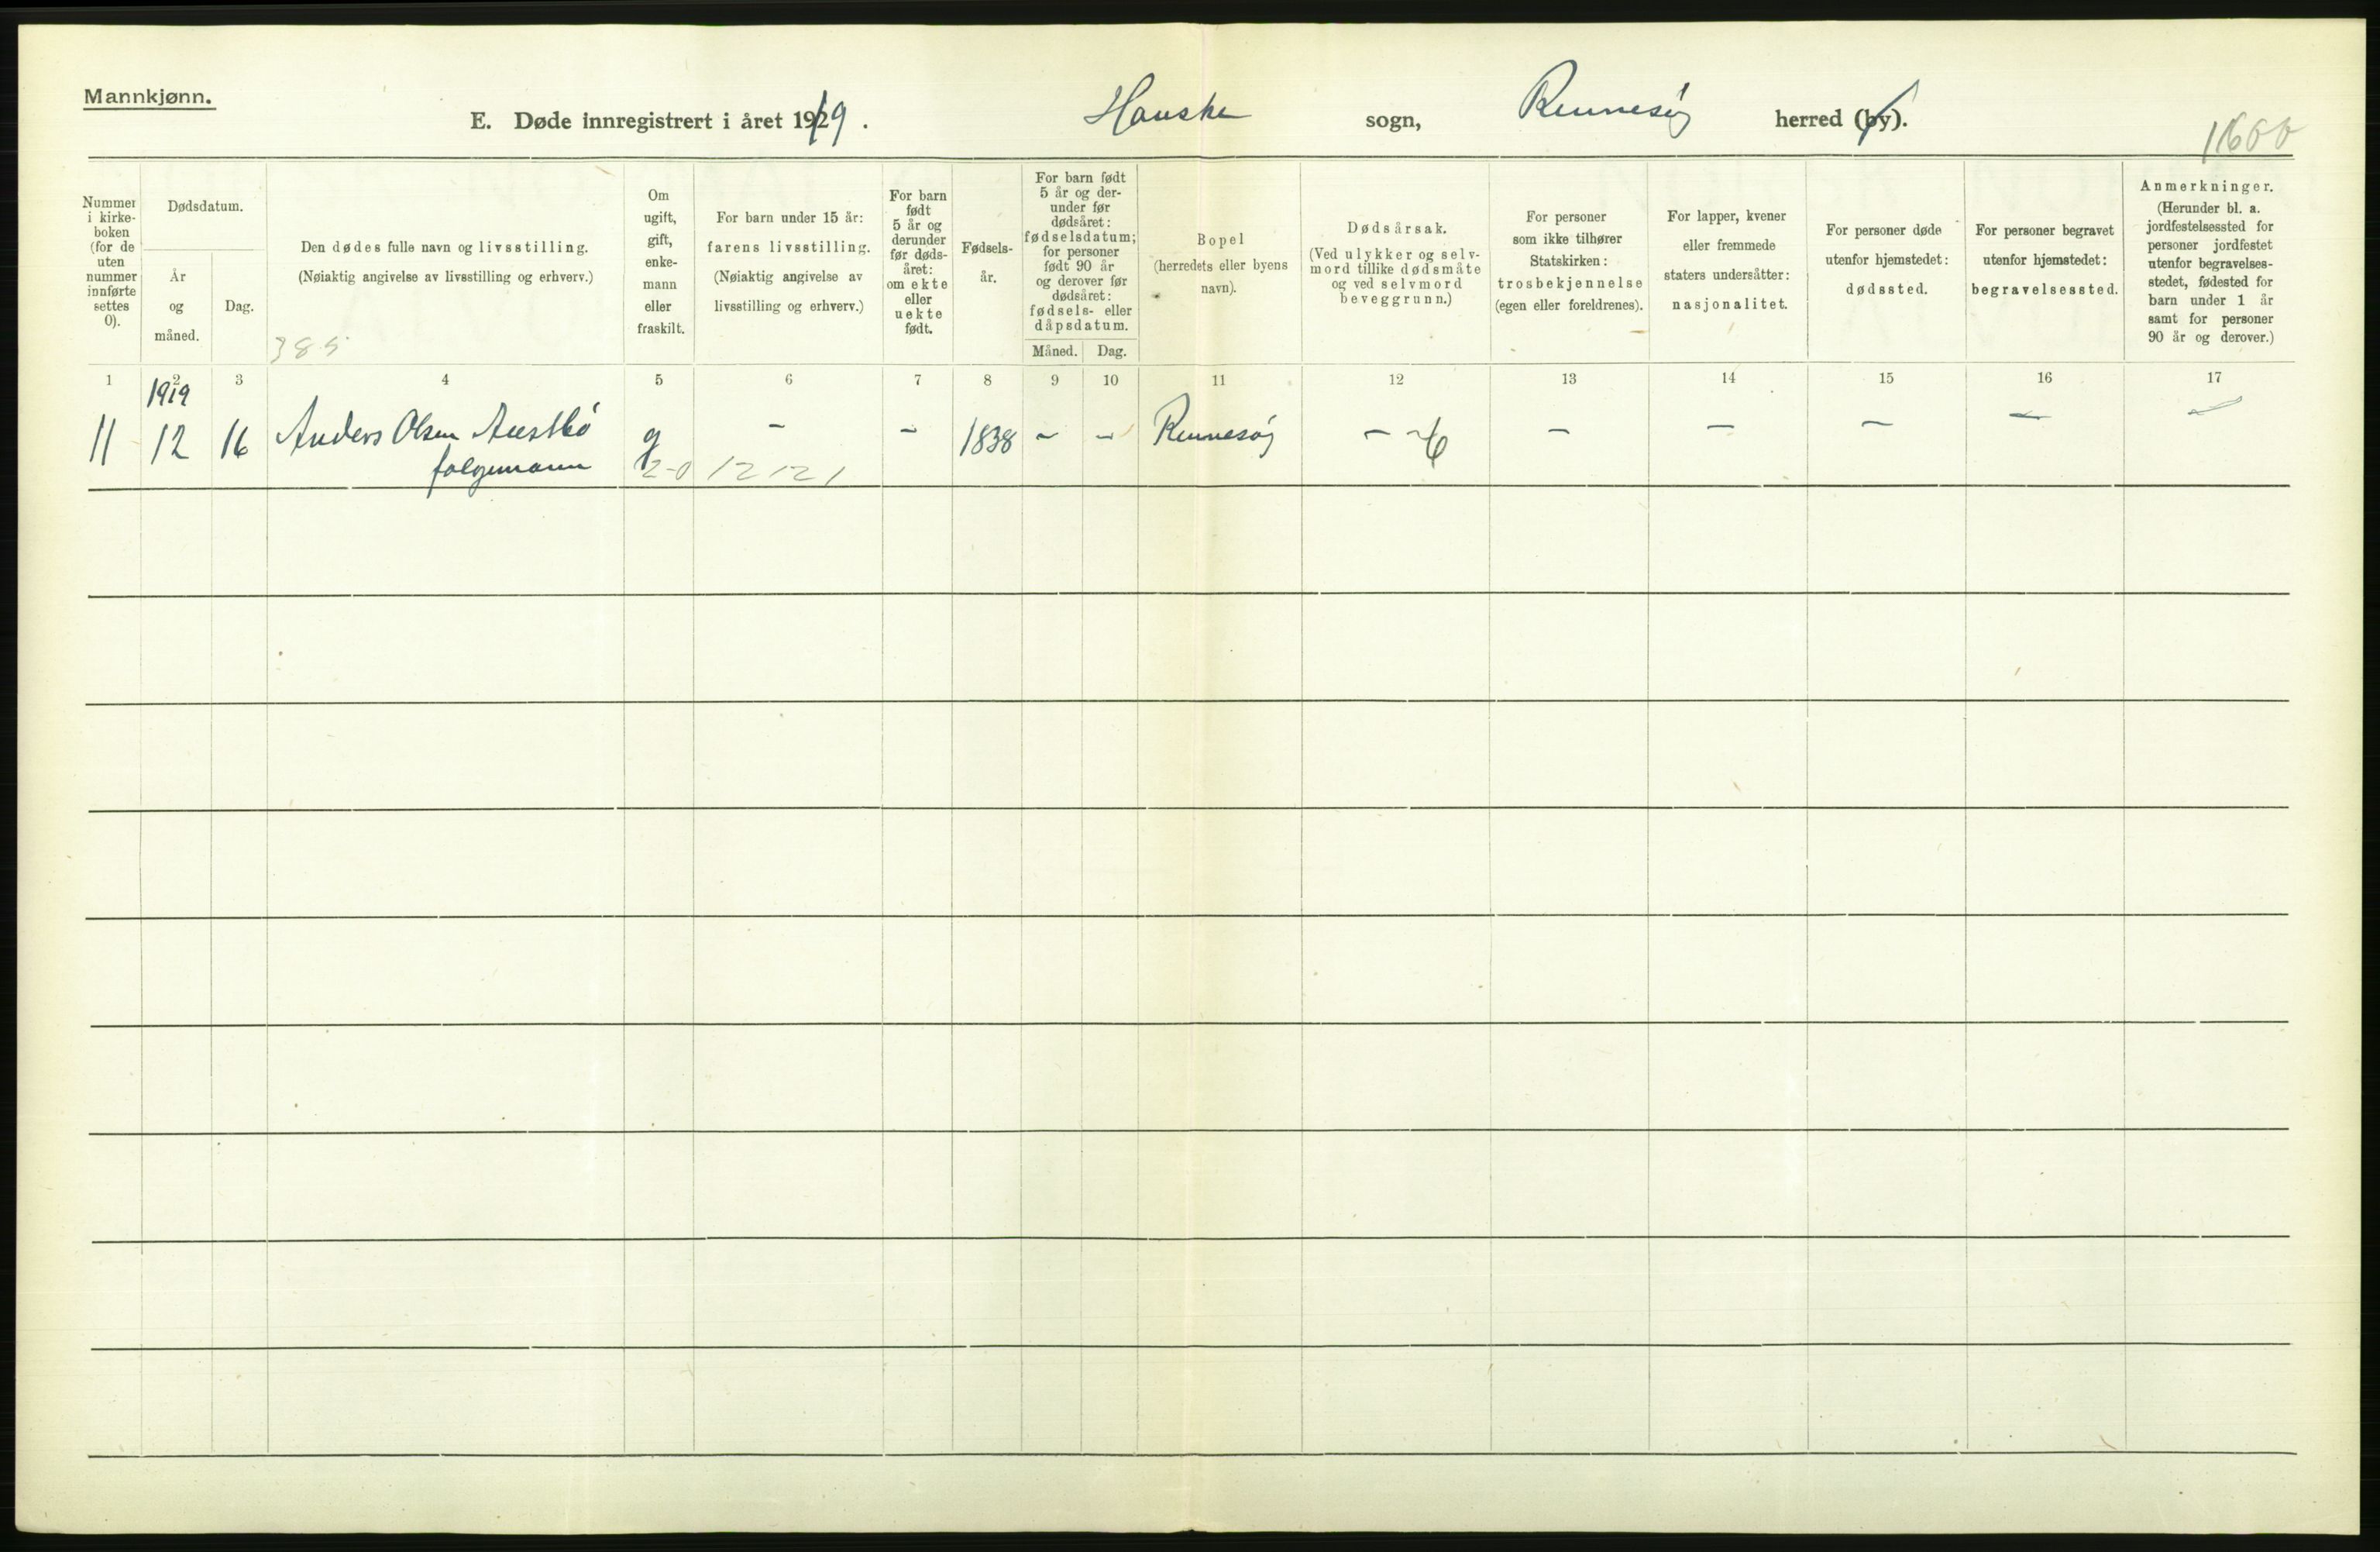 Mannkjønn.
E. Døde innregistrert i året 1919. Hauske sogn, Rennesøy herred (by).
11600
Nummer i kirkeboken (for de uten nummer innførte settes 0).
Dødsdatum.
År og måned.
Dag.
Den dødes fulle navn og livsstilling.
(Nøiaktig angivelse av livsstilling og erhverv.)
385
Om ugift, gift, enkemann eller fraskilt.
For barn under 15 år:
farens livsstilling.
(Nøiaktig angivelse av livsstilling og erhverv.)
For barn født 5 år og derunder før dødsåret: om ekte eller uekte født.
Fødselsår.
For barn født 5 år og derunder før dødsåret: fødselsdatum; for personer født 90 år og derover før dødsåret: fødsels- eller dåpsdatum.
Måned. Dag.
Bopel
(herredets eller byens navn).
Dødsårsak.
(Ved ulykker og selvmord tillike dødsmåte og ved selvmord beveggrunn.)
For personer som ikke tilhører Statskirken: trosbekjennelse (egen eller foreldrenes).
For lapper, kvener eller fremmede staters undersåtter: nasjonalitet.
For personer døde utenfor hjemstedet: dødssted.
For personer begravet utenfor hjemstedet: begravelsessted.
Anmerkninger.
(Herunder bl. a. jordfestelsessted for personer jordfestet utenfor begravelsesstedet, fødested for barn under 1 år samt for personer 90 år og derover.)
1 2 3 4 5 6 7 8 9 10 11 12 13 14 15 16 17
1919
11 12 16 Anders Olsen Austbø g - - 1838 - - Rennesøy - - - - - - -
følgemann 2-0 12121